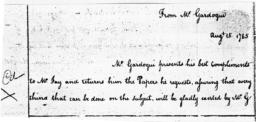 From Mr Gardoqui
Augt 15 1785
Mr Gardoqui presents his best compliments
to Mr Jay and returns him the Papers he requests, assuring that every
thing that can be done on the subject, will be gladly exerted by Mr G